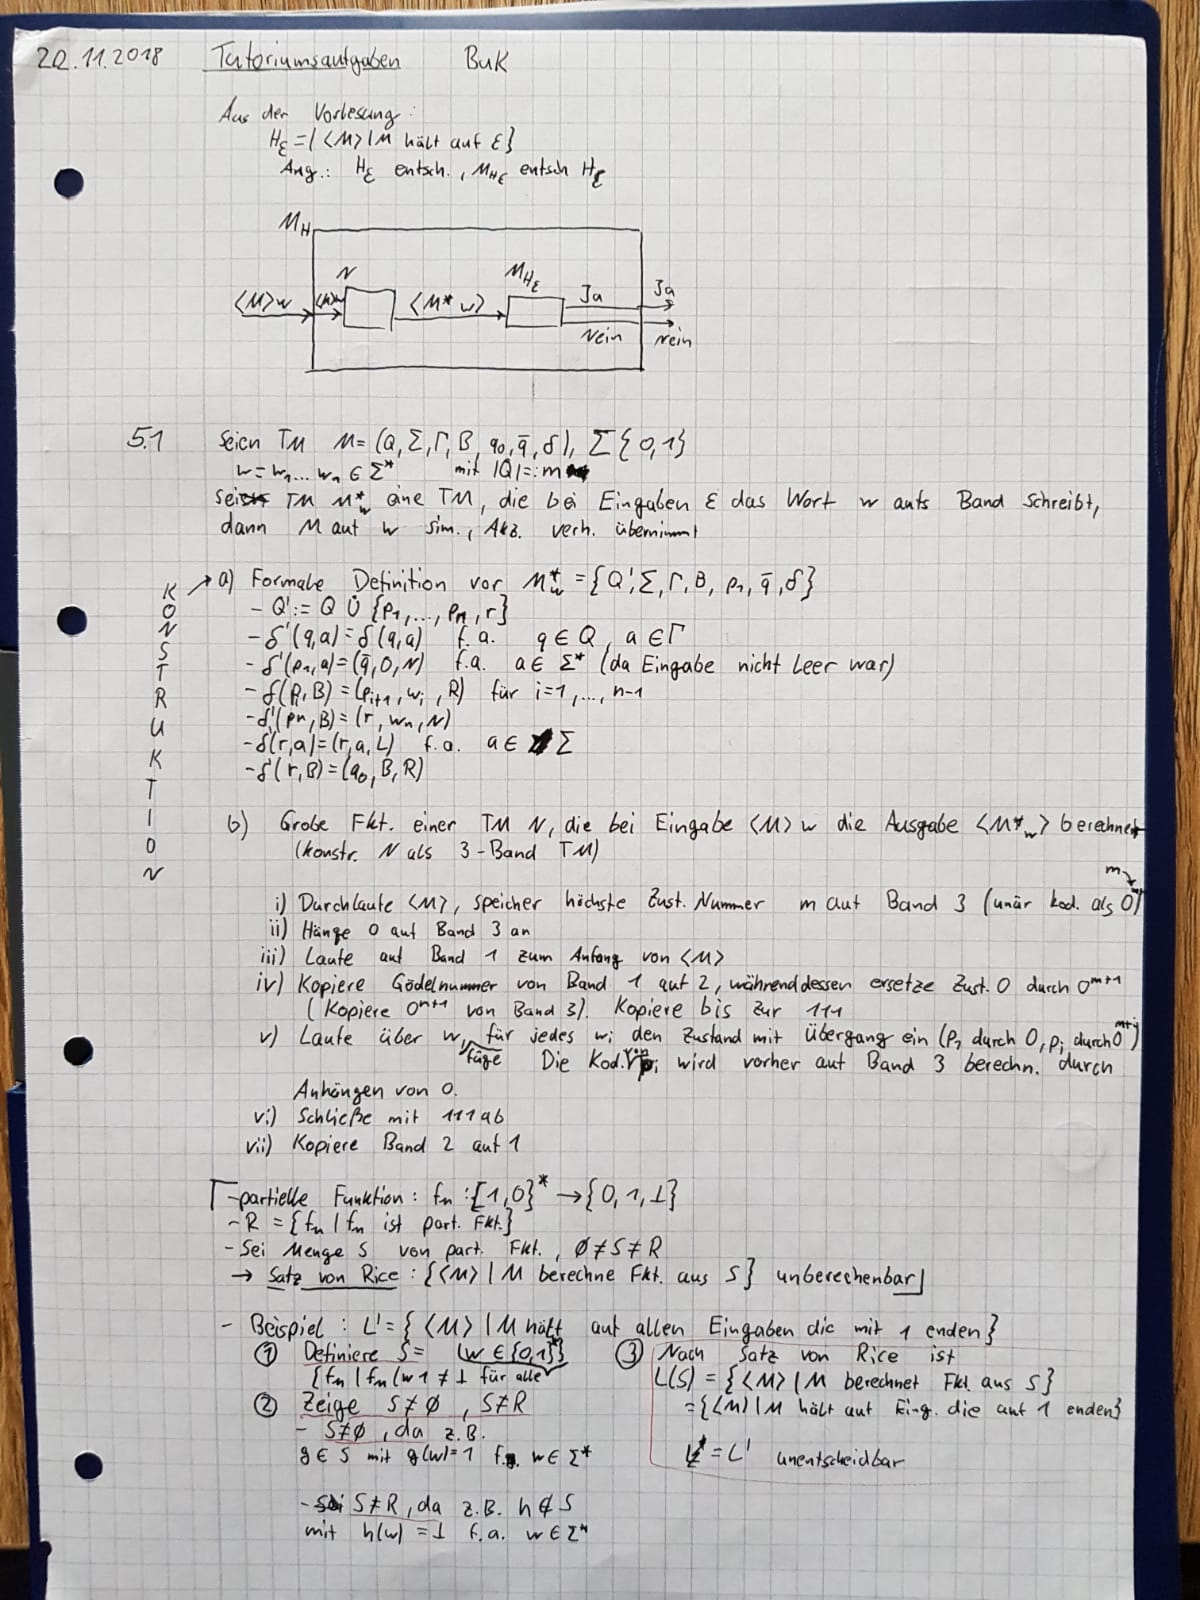 20.11.2018 Tutoriumsaufgaben BuK
Aus der Vorlesung:
H_ε = {⟨M⟩ | M hält auf ε}
Ang.: H_ε entsch., M_Hε entsch H_ε
M_H
N M_Hε
⟨M⟩w ⟨M⟩w ⟨M* w⟩ Ja Ja
Nein Nein
5.1 Seien TM M = (Q, Σ, Γ, B, q₀, q̄, δ), Σ{0,1}
w = w₁...wₙ ∈ Σ* mit |Q| =: m
sei TM M*_w eine TM, die bei Eingaben ε das Wort w aufs Band schreibt,
dann M auf w sim., Akz. verh. übernimmt
KONSTRUKTION
a) Formale Definition vor M*_w = {Q', Σ, Γ, B, p₁, q̄, δ}
- Q' := Q ∪̇ {p₁, ..., pₙ, r}
- δ'(q,a) = δ(q,a) f.a. q ∈ Q, a ∈ Γ
- δ'(p₁,a) = (q̄, 0, N) f.a. a ∈ Σ* (da Eingabe nicht leer war)
- δ(pᵢ, B) = (pᵢ₊₁, wᵢ, R) für i=1, ..., n-1
- δ'(pₙ, B) = (r, wₙ, N)
- δ(r,a) = (r,a,L) f.a. a ∈ Σ
- δ'(r,B) = (q₀, B, R)
b) Grobe Fkt. einer TM N, die bei Eingabe ⟨M⟩w die Ausgabe ⟨M*_w⟩ berechnet
(konstr. N als 3-Band TM)
i) Durchlaufe ⟨M⟩, speicher höchste Zust. Nummer m auf Band 3 (unär kod. als 0^m)
ii) Hänge 0 auf Band 3 an
iii) Laufe auf Band 1 zum Anfang von ⟨M⟩
iv) Kopiere Gödelnummer von Band 1 auf 2, währenddessen ersetze Zust. 0 durch 0^{m+1}
(Kopiere 0^{m+1} von Band 3). Kopiere bis zur 111
v) Laufe über w, füge für jedes wᵢ den Zustand mit Übergang ein (p₁ durch 0, pᵢ durch 0^{m+i})
Die Kod. von pᵢ wird vorher auf Band 3 berechn. durch
Anhängen von 0.
vi) Schließe mit 111 ab
vii) Kopiere Band 2 auf 1
- partielle Funktion: f_M : {1,0}* → {0,1,⊥}
- R = {f_M | f_M ist part. Fkt.}
- Sei Menge S von part. Fkt., ∅ ≠ S ≠ R
→ Satz von Rice: {⟨M⟩ | M berechne Fkt. aus S} unberechenbar
- Beispiel: L' = {⟨M⟩ | M hält auf allen Eingaben die mit 1 enden}
① Definiere S = (w ∈ {0,1}*}
{f_M | f_M(w1 ≠ ⊥ für alle
② Zeige S ≠ ∅, S ≠ R
- S ≠ ∅, da z.B.
g ∈ S mit g(w) = 1 f.a. w ∈ Σ*
- S ≠ R, da z.B. h ∉ S
mit h(w) = ⊥ f.a. w ∈ Σ*
③ Nach Satz von Rice ist
L(S) = {⟨M⟩ | M berechnet Fkt. aus S}
= {⟨M⟩ | M hält auf Eing. die auf 1 enden}
= L' unentscheidbar